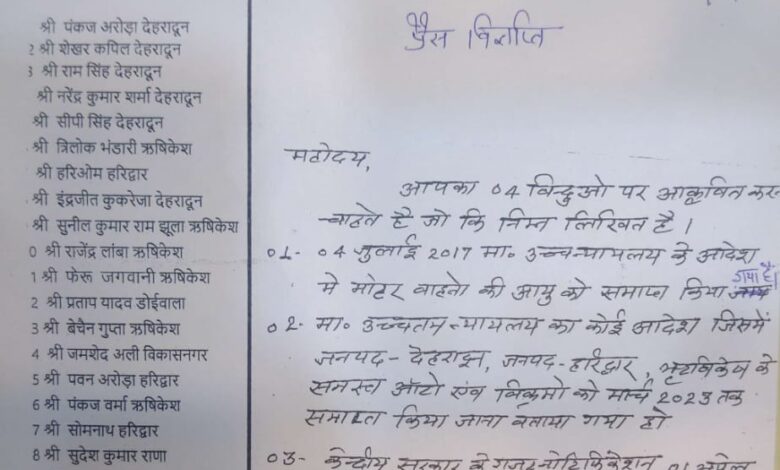 श्री पंकज अरोड़ा देहरादून
2 श्री शेखर कपिल देहरादून
3 श्री राम सिंह देहरादून
श्री नरेंद्र कुमार शर्मा देहरादून
श्री सीपी सिंह देहरादून
श्री त्रिलोक भंडारी ऋषिकेश
श्री हरिओम हरिद्वार
श्री इंद्रजीत कुकरेजा देहरादून
श्री सुनील कुमार राम झूला ऋषिकेश
0 श्री राजेंद्र लांबा ऋषिकेश
1 श्री फेरू जगवानी ऋषिकेश
2 श्री प्रताप यादव डोईवाला
3 श्री बेचैन गुप्ता ऋषिकेश
4 श्री जमशेद अली विकासनगर
5 श्री पवन अरोड़ा हरिद्वार
6 श्री पंकज वर्मा ऋषिकेश
7 श्री सोमनाथ हरिद्वार
8 श्री सुदेश कुमार राणा
प्रैस विज्ञप्ति
महोदय,
आपका 04 बिन्दुओ पर आकृषित कर
चाहते है जो कि निम्न लिखित है।
01- 04 जुलाई 2017 मा० उच्च न्यायलय के आदेश
मे मोटर वाहनो की आयु को समाप्त किया गया है।
02- मा० उच्चतम न्यायलय का कोई आदेश जिसमें
जनपद- देहरादून, जनपद- हरिद्वार, ऋषिकेष के
समस्त ऑटो एंव विक्रमो को मार्च 2023 तक
समाप्त किया जाना बताया गया हो
03- केन्द्रीय सरकार के गजट नोटिफिकेशन